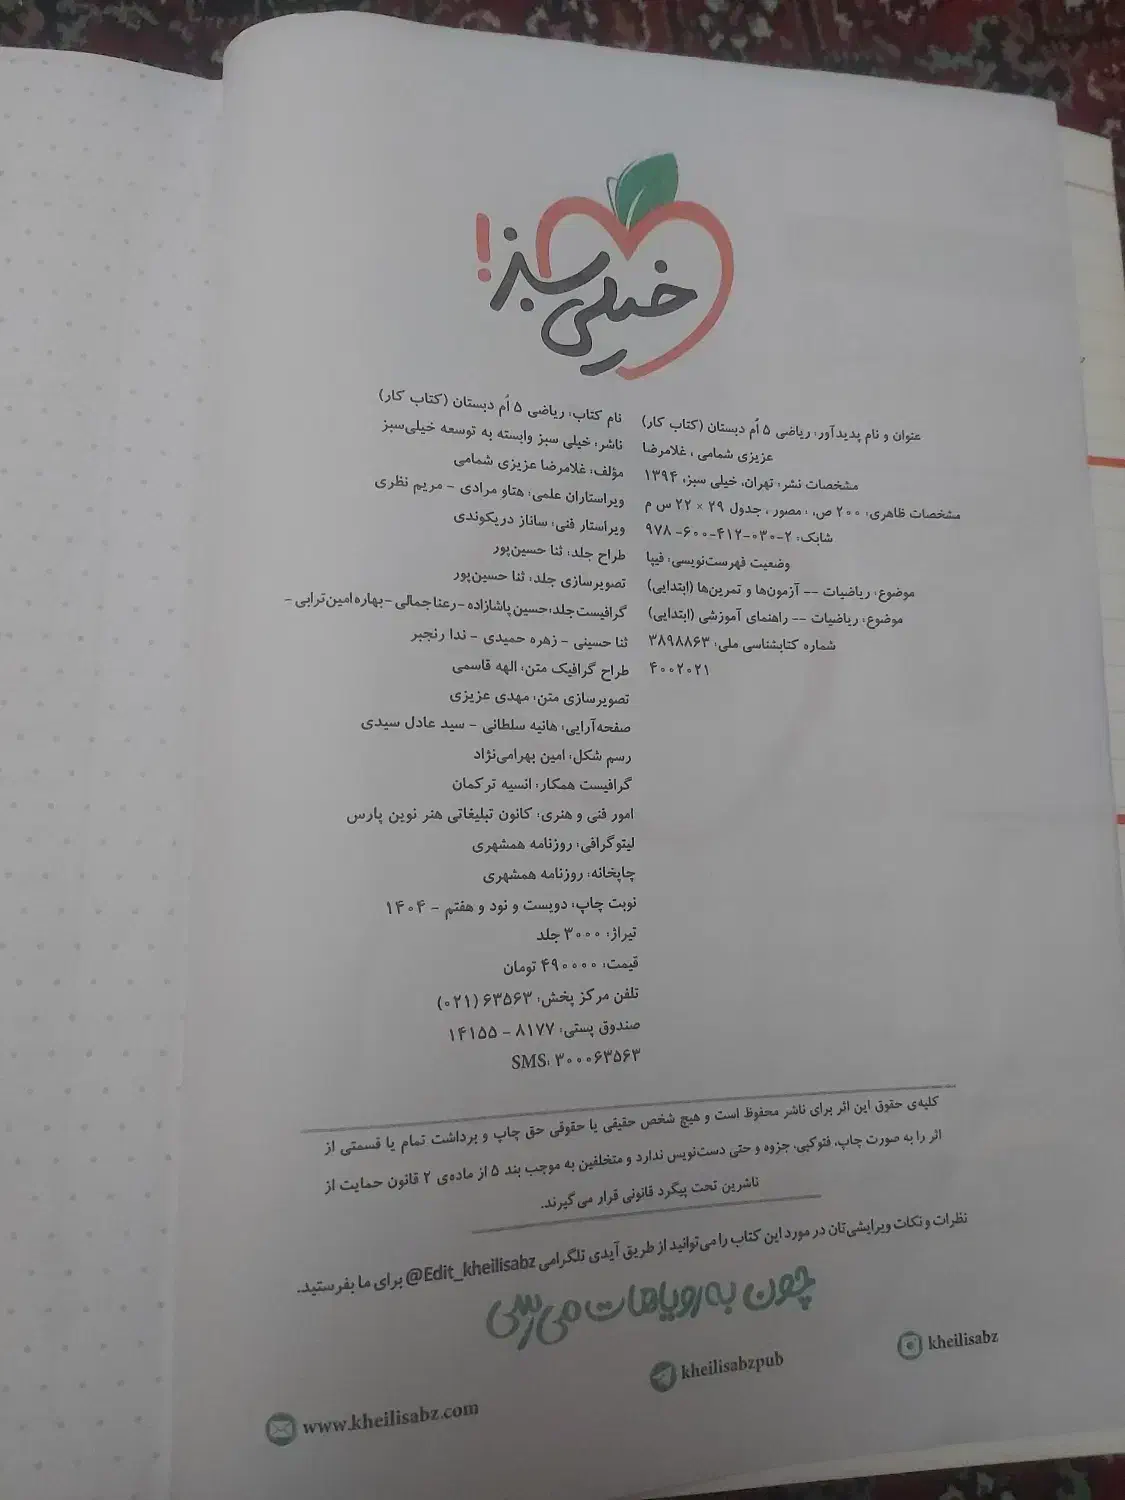 خیلی سبز!
عنوان و نام پدیدآور: ریاضی ۵ اُم دبستان (کتاب کار)
عزیزی شمامی ، غلامرضا
مشخصات نشر: تهران، خیلی سبز، ۱۳۹۴
مشخصات ظاهری: ۲۰۰ ص، : مصور ، جدول ۲۹ × ۲۲ س م
شابک: ۲-۰۳۰-۴۱۲-۶۰۰-۹۷۸
وضعیت فهرست‌نویسی: فیپا
موضوع: ریاضیات -- آزمون‌ها و تمرین‌ها (ابتدایی)
موضوع: ریاضیات -- راهنمای آموزشی (ابتدایی)
شماره کتابشناسی ملی: ۳۸۹۸۸۶۳
۴۰۰۲۰۲۱
نام کتاب: ریاضی ۵ اُم دبستان (کتاب کار)
ناشر: خیلی سبز وابسته به توسعه خیلی‌سبز
مؤلف: غلامرضا عزیزی شمامی
ویراستاران علمی: هتاو مرادی - مریم نظری
ویراستار فنی: ساناز دریکوندی
طراح جلد: ثنا حسین‌پور
تصویرسازی جلد: ثنا حسین‌پور
گرافیست جلد: حسین پاشازاده - رعنا جمالی - بهاره امین‌ترابی -
ثنا حسینی - زهره حمیدی - ندا رنجبر
طراح گرافیک متن: الهه قاسمی
تصویرسازی متن: مهدی عزیزی
صفحه‌آرایی: هانیه سلطانی - سید عادل سیدی
رسم شکل: امین بهرامی‌نژاد
گرافیست همکار: انسیه ترکمان
امور فنی و هنری: کانون تبلیغاتی هنر نوین پارس
لیتوگرافی: روزنامه همشهری
چاپخانه: روزنامه همشهری
نوبت چاپ: دویست و نود و هفتم - ۱۴۰۴
تیراژ: ۳۰۰۰ جلد
قیمت: ۴۹۰۰۰۰ تومان
تلفن مرکز پخش: ۶۳۵۶۳ (۰۲۱)
صندوق پستی: ۸۱۷۷ - ۱۴۱۵۵
SMS: ۳۰۰۰۶۳۵۶۳
کلیه‌ی حقوق این اثر برای ناشر محفوظ است و هیچ شخص حقیقی یا حقوقی حق چاپ و برداشت تمام یا قسمتی از
اثر را به صورت چاپ، فتوکپی، جزوه و حتی دست‌نویس ندارد و متخلفین به موجب بند ۵ از ماده‌ی ۲ قانون حمایت از
ناشرین تحت پیگرد قانونی قرار می‌گیرند.
نظرات و نکات ویرایشی‌تان در مورد این کتاب را می‌توانید از طریق آیدی تلگرامی @Edit_kheilisabz برای ما بفرستید.
چون به رویاهات می‌رسی
kheilisabz
kheilisabzpub
www.kheilisabz.com